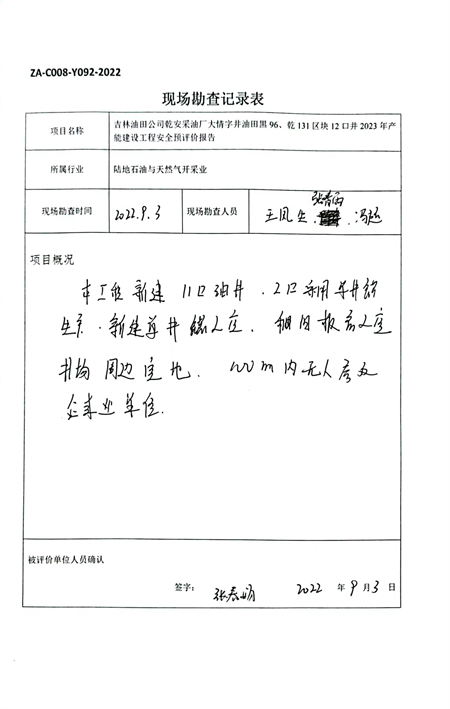 ZA-C008-Y092-2022
现场勘查记录表
项目名称
吉林油田公司乾安采油厂大情字井油田黑96、乾131区块12口井2023年产
能建设工程安全预评价报告
所属行业
陆地石油与天然气开采业
现场勘查时间
2022.9.3
现场勘查人员
王凤生
冯
项目概况
本工程新建11口油井、2口采用单井
生产、新建单井
井均周边
100m内无人居及
企事业单位.
被评价单位人员确认
签字:
张春
2022 年 9 月 3 日